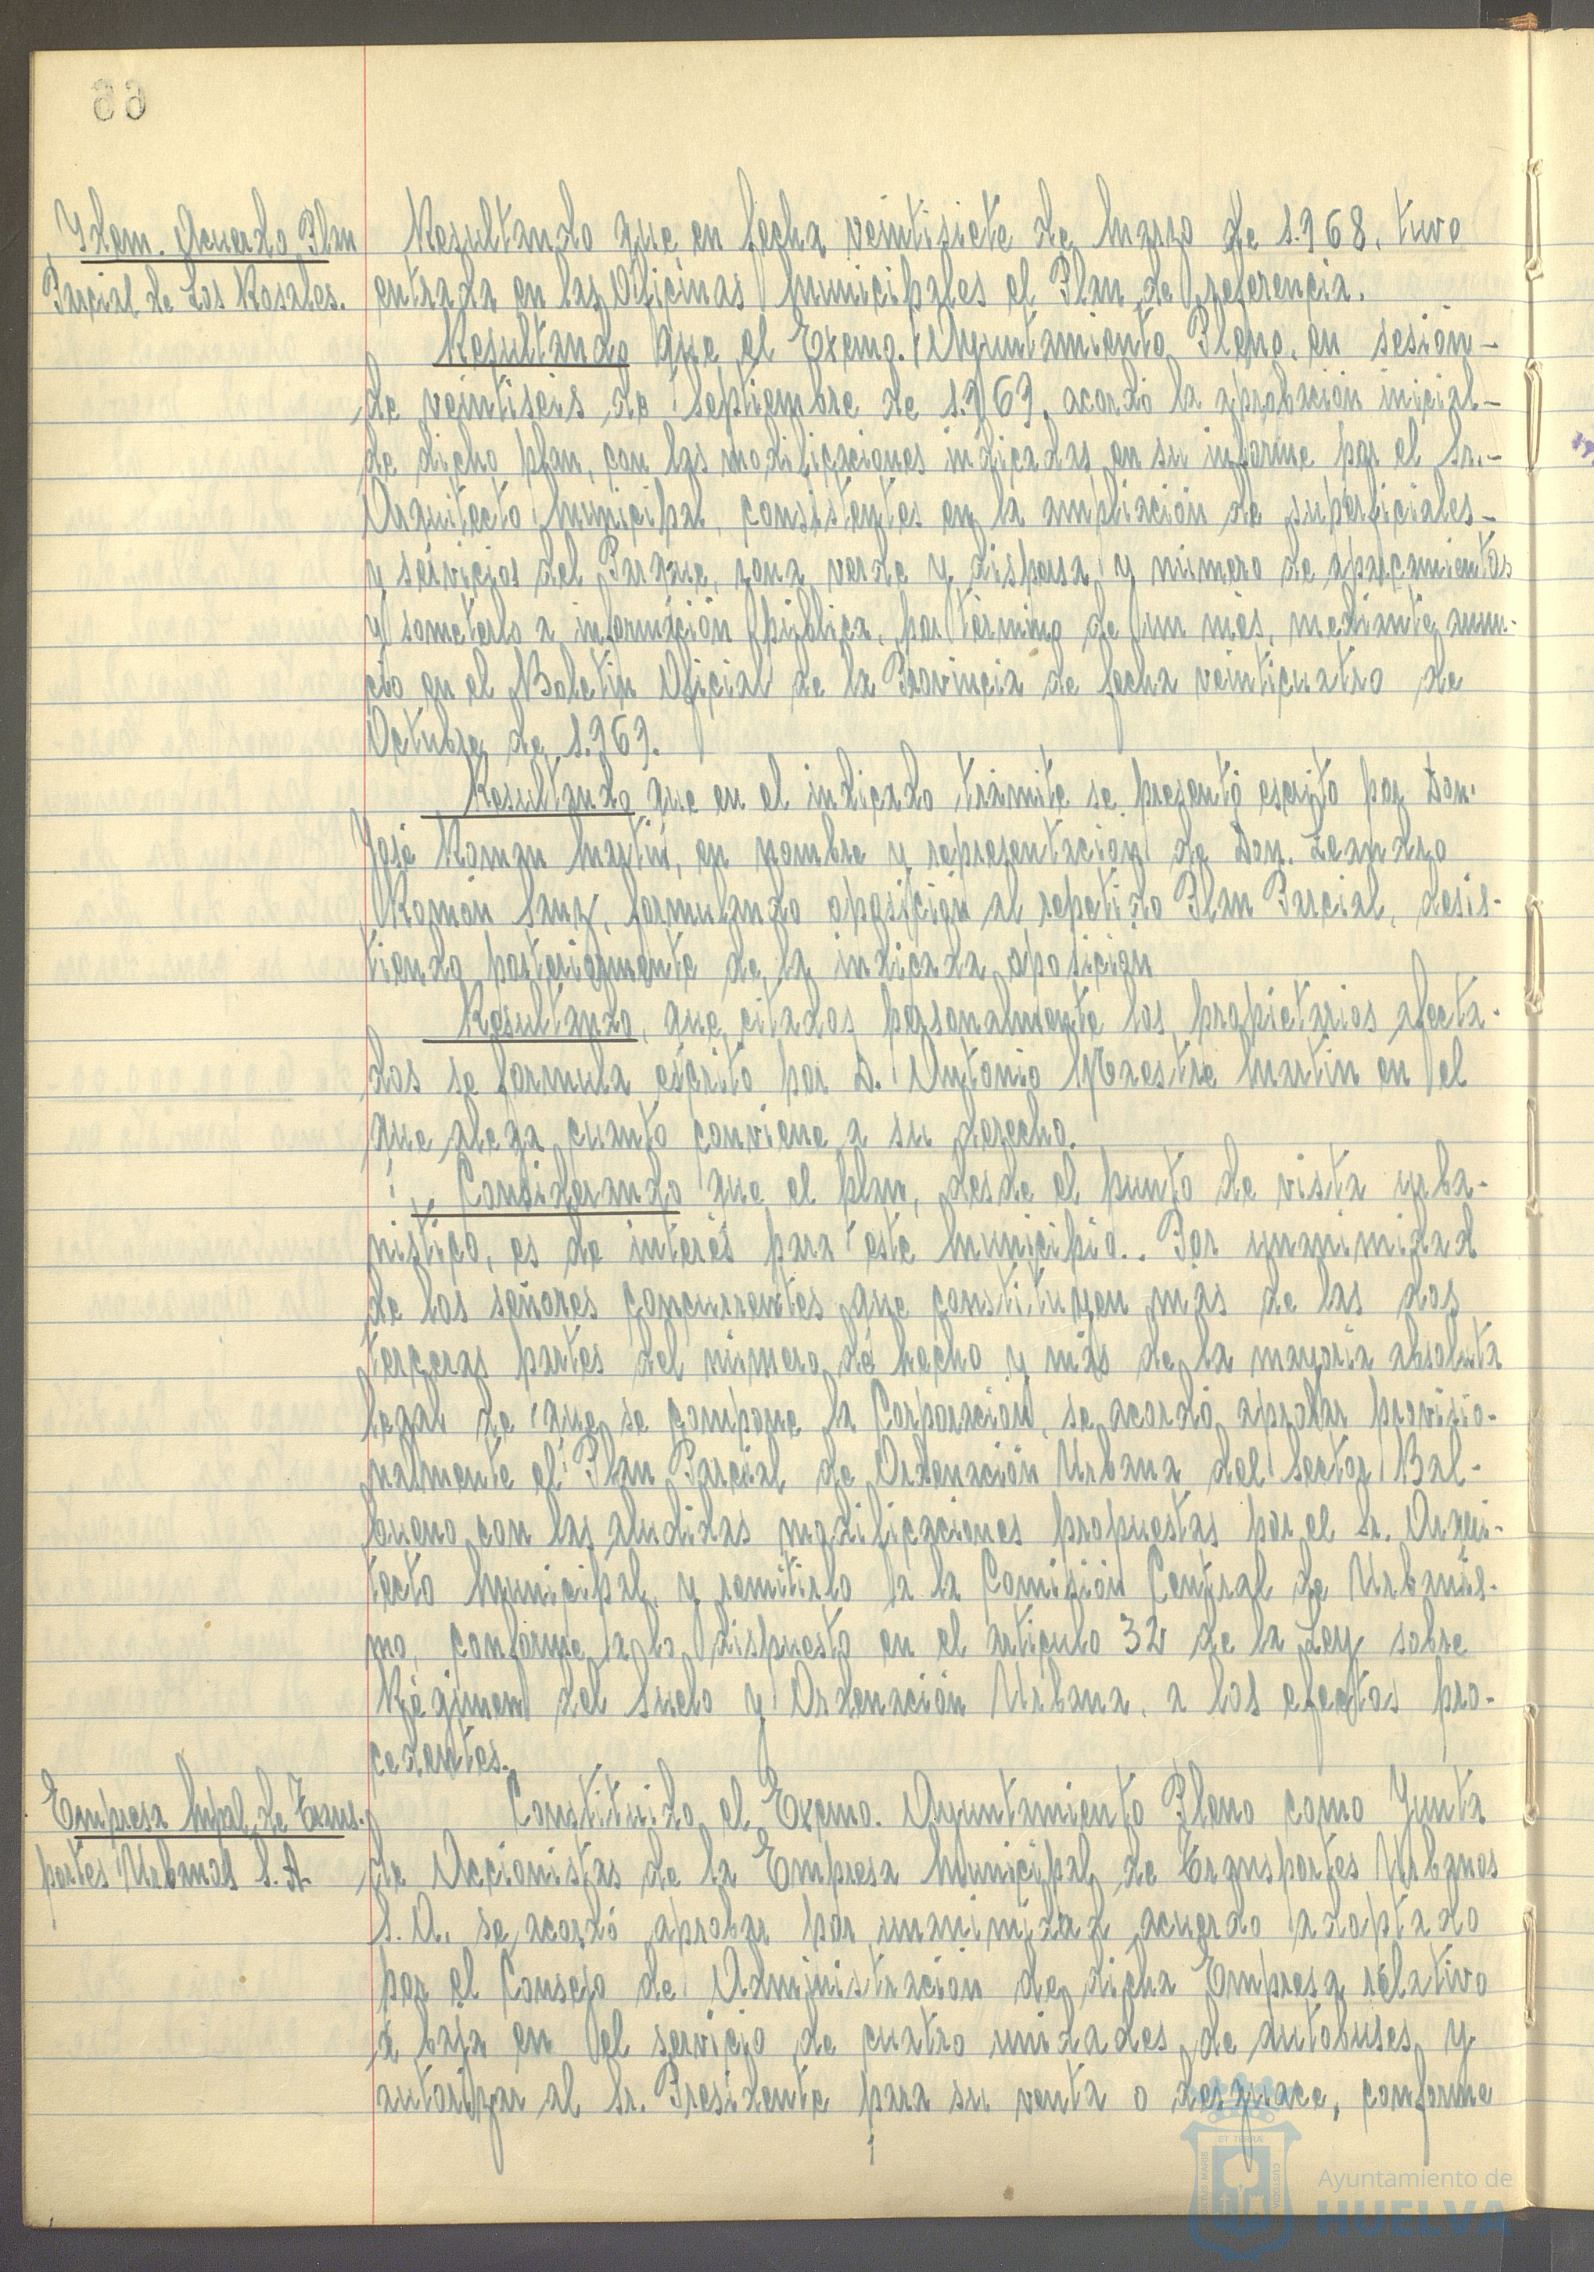 66
Idem. Acuerdo Plan
Parcial de Los Rosales.
Resultando que en fecha veintisiete de Marzo de 1.968, tuvo
entrada en las Oficinas Municipales el Plan de referencia.
Resultando que el Excmo. Ayuntamiento Pleno, en sesión-
de veintiseis de Septiembre de 1.969, acordó la aprobación inicial-
de dicho plan, con las modificaciones indicadas en su informe por el Sr.-
Arquitecto Municipal, consistentes en la ampliación de superficiales-
y servicios del Parque, zona verde y dispersa y número de aparcamientos
y someterlo a información pública, por término de un mes, mediante anun-
cio en el Boletin Oficial de la Provincia de fecha veinticuatro de
Octubre de 1.969.
Resultando que en el indicado trámite se presentó escrito por Don.
José Roman Martín, en nombre y representación de Don. Leandro
Román Sanz, formulando oposición al repetido Plan Parcial, desis-
tiendo posteriormente de la indicada oposición
Resultando, que citados personalmente los propietarios afecta-
dos se formula escrito por D. Antonio Maestre Martin en el
que alega cuanto conviene a su derecho.
Considerando que el plan, desde el punto de vista urba-
nistico, es de interés para este Municipio.. Por unanimidad
de los señores concurrentes que constituyen más de las dos
terceras partes del número de hecho y más de la mayoria absoluta
legal de que se compone la Corporación, se acordó aprobar provisio-
nalmente el Plan Parcial de Ordenación Urbana del Sector Bal-
bueno con las aludidas modificaciones propuestas por el Sr. Arqui-
tecto Municipal, y remitirlo a la Comisión Central de Urbanis-
mo, conforme a lo dispuesto en el articulo 32 de la Ley sobre
Régimen del Suelo y Ordenación Urbana, a los efectos pro-
cedentes.
Empresa Mpal. de Trans.
portes Urbanos S.A.
Constituido el Excmo. Ayuntamiento Pleno como Junta
de Accionistas de la Empresa Municipal de Transportes Urbanos
S.A. se acordó aprobar por unanimidad acuerdo adoptado
por el Consejo de Administración de dicha Empresa relativo
a baja en el servicio de cuatro unidades de autobuses y
autorizar al Sr. Presidente para su venta o desguace, conforme
Ayuntamiento de
HUELVA